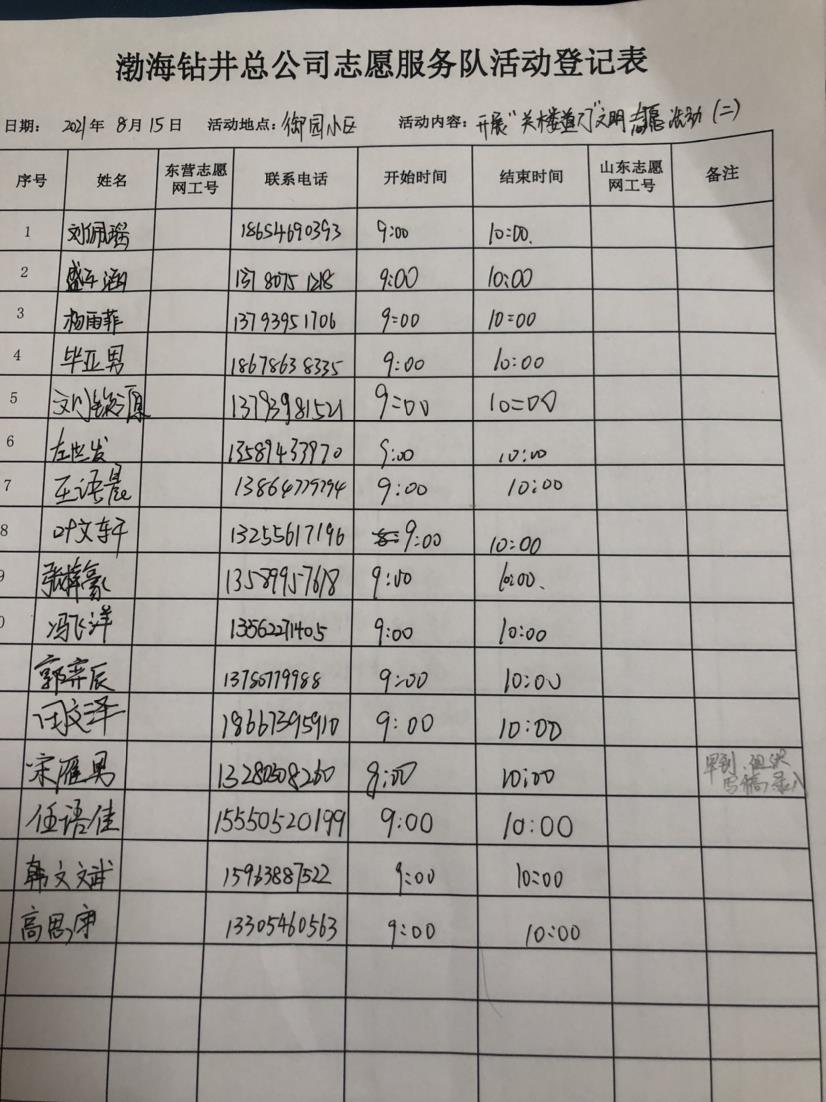 渤海钻井总公司志愿服务队活动登记表
日期： 2021年 8月15日 活动地点：御园小区 活动内容：开展"关楼道灯"文明志愿活动(二)
序号 姓名 东营志愿网工号 联系电话 开始时间 结束时间 山东志愿网工号 备注
1 刘佩瑶 18654690393 9:00 10:00.
2 13780751218 9:00 10:00
3 杨雨菲 13793951706 9:00 10:00
4 毕亚男 18678638335 9:00 10:00
5 13793981521 9:00 10:00
6 左世发 13589433970 9:00 10:00
7 王语晨 13864779794 9:00 10:00
8 叶文轩 13255617196 9:00 10:00
9 张梓豪 13589957618 9:00 10:00.
0 冯飞洋 13562271405 9:00 10:00
郭弈辰 13786779988 9:00 10:00
闫文泽 18667395910 9:00 10:00
宋雁男 13280308260 8:00 10:00 早到、组织
写稿、录入
任语佳 15550520199 9:00 10:00
韩文斌 15963887522 9:00 10:00
高思 13305460563 9:00 10:00